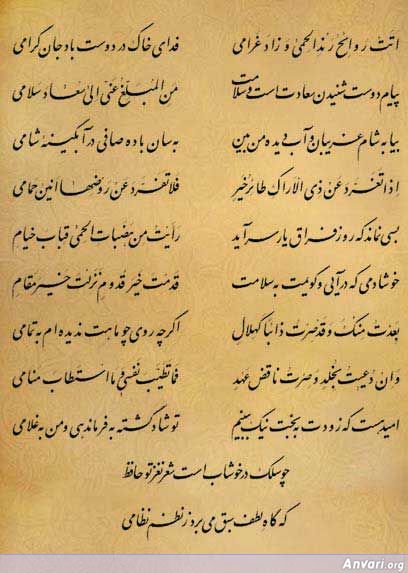 اتت روائح رند الحمی و زاد غرامی فدای خاک در دوست باد جان گرامی
پیام دوست شنیدن سعادت است و سلامت من المبلغ عنی الی سعاد سلامی
بیا به شام غریبان و آب دیده من بین به سان باده صافی در آبگینه شامی
اذا تغرد عن ذی الاراک طائر خیر فلا تفرد عن روضها انین حمامی
بسی نماند که روز فراق یار سرآید رایت من هضبات الحمی قباب خیام
خوشا دمی که درآیی و گویمت به سلامت قدمت خیر قدوم نزلت خیر مقام
بعدت منک و قد صرت ذائبا کهلال اگرچه روی چو ماهت ندیده‌ام به تمامی
وان دعیت بخلد و صرت ناقض عهد فما تطیب نفسی و ما استطاب منامی
امید هست که زودت به بخت نیک ببینم تو شاد گشته به فرماندهی و من به غلامی
چو سلک در خوشاب است شعر نغز تو حافظ
که گاه لطف سبق می‌برد ز نظم نظامی
Anvari.org